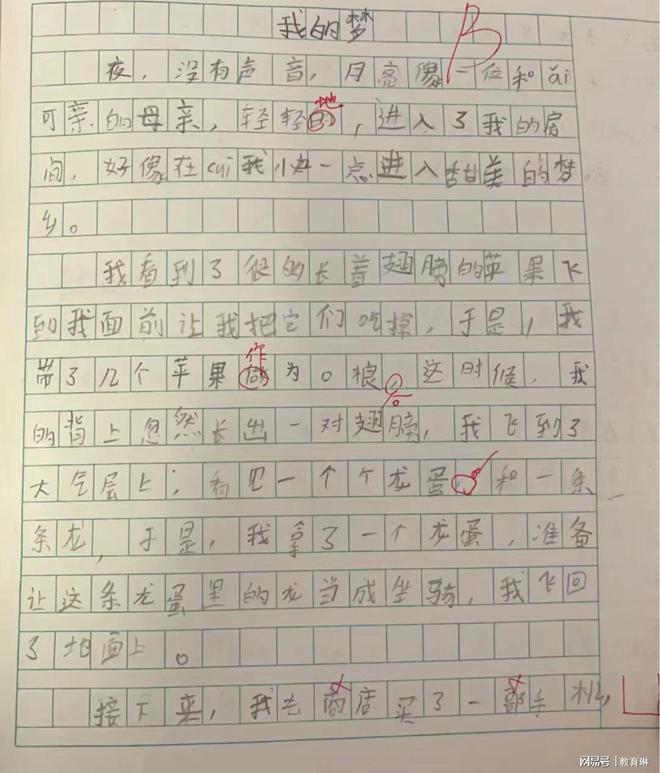 我的梦
B
夜，没有声音，月亮像一位和ǎi
可亲的母亲，轻轻的，进入了我的房
地
间，好像在cuī我快一点进入甜美的梦
乡。
我看到了很多长着翅膀的苹果飞
到我面前让我把它们吃掉，于是，我
带了几个苹果做为口粮。这时候，我
作
的背上忽然长出一对翅膀，我飞到了
大气层上；看见一个个龙蛋，和一条
条龙，于是，我拿了一个龙蛋，准备
让这条龙蛋里的龙当成坐骑，我飞回
了地面上。
接下来，我去商店买了一部手机，
网易号 | 教育琳